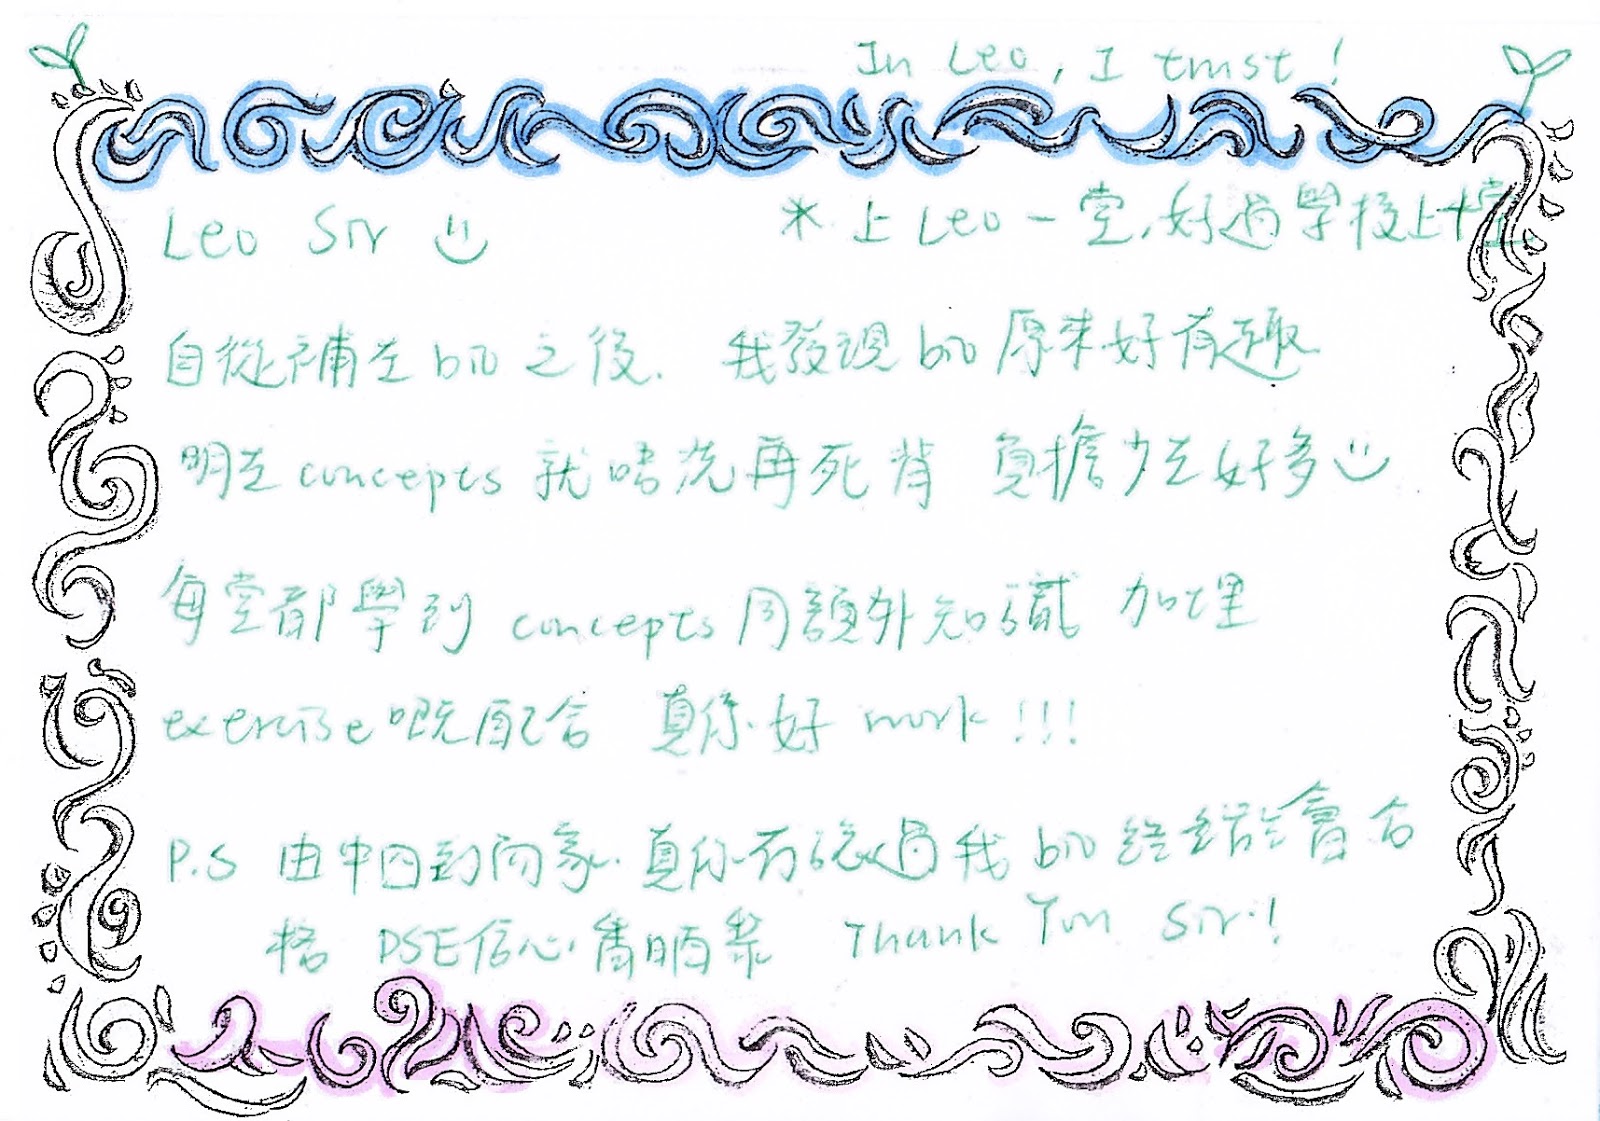 In Leo, I trust!
Leo Sir
* 上 Leo 一堂,好過學校上十堂
自從補左bio之後. 我發現bio原來好有趣
明左concepts就唔洗再死背 負擔少左好多
每堂都學到 concepts同額外知識 加埋
exercise嘅配合 真係好 work!!!
P.S 由中四到而家.真係冇諗過我bio終於會合
格 DSE信心 Thank You Sir!